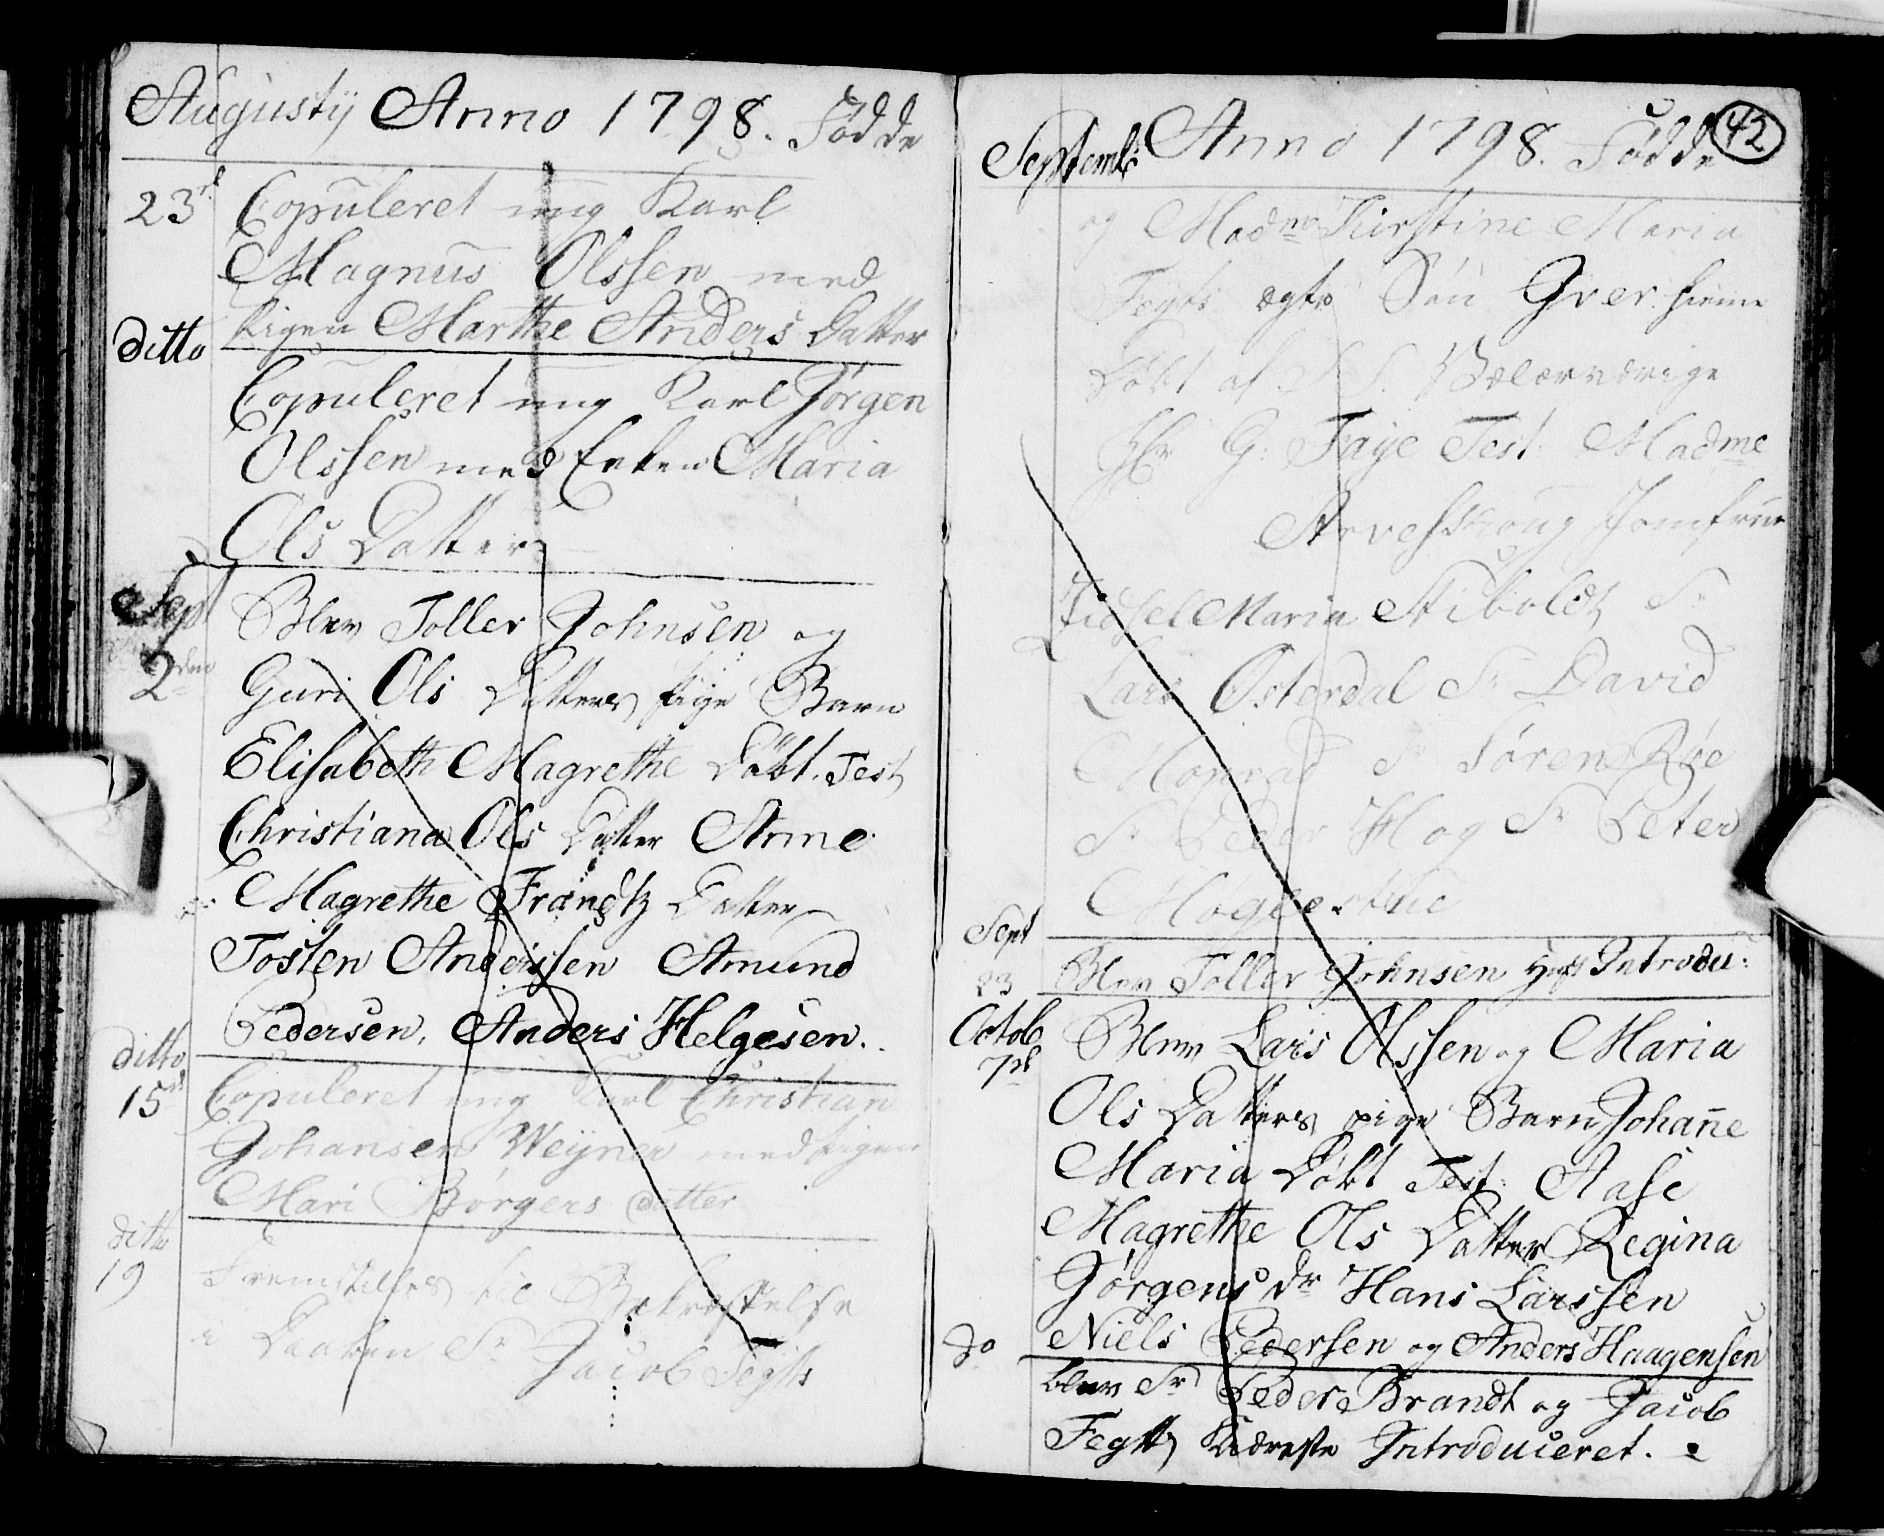 Augustij Anno 1798. Fødde
23d Copuleret ung Karl
Magnus Olssen med
Pigen Marthe Anders Datter
ditto
Copuleret ung Karl Jørgen
Olssen med Enken Maria
Ols Datter
Sept
Blev Toller Johnsen og
2den Guri Ols Datters pige Barn
Elisabeth Magrethe Døbt. Test
Christiana Ols Datter Anne
Magrethe Frandtz Datter
Tosten Anderssen Amund
Pedersen, Anders Helgesen.
ditto
15d Copuleret ung Karl Christian
Johansen Weyner med Pigen
Mari Børgers Datter
ditto
19 Fremstillet til Bekræftelse
i Daaben Sr Jacob Fegts
42
Septembr Anno 1798. Fødde
og Madme Kirstine Maria
Fegts ægte Søn Gver hieme
Døbt af S. S. Velærværige
Hr G: Faye Test: Madme
Arveskoug Jomfrue
Sidsel Maria Stiboldt Sr
Lars Østerdal Sr David
Monrad Sr Søren Røe
Sr Peder Høg Sr Peter
Møglestue
Sept
23 Blev Toller Johnsen Hust Introdu:
Octob
7d Blev Lars Olssen og Maria
Ols Datters pige Barn Johanne
Maria Døbt Test: Aase
Magrethe Ols Datter Regina
Jørgens dr Hans Larssen
Niels Pedersen og Anders Haagensen
do
blev Sr Peder Brandt og Jacob
Fegts Kiæreste Introduceret.